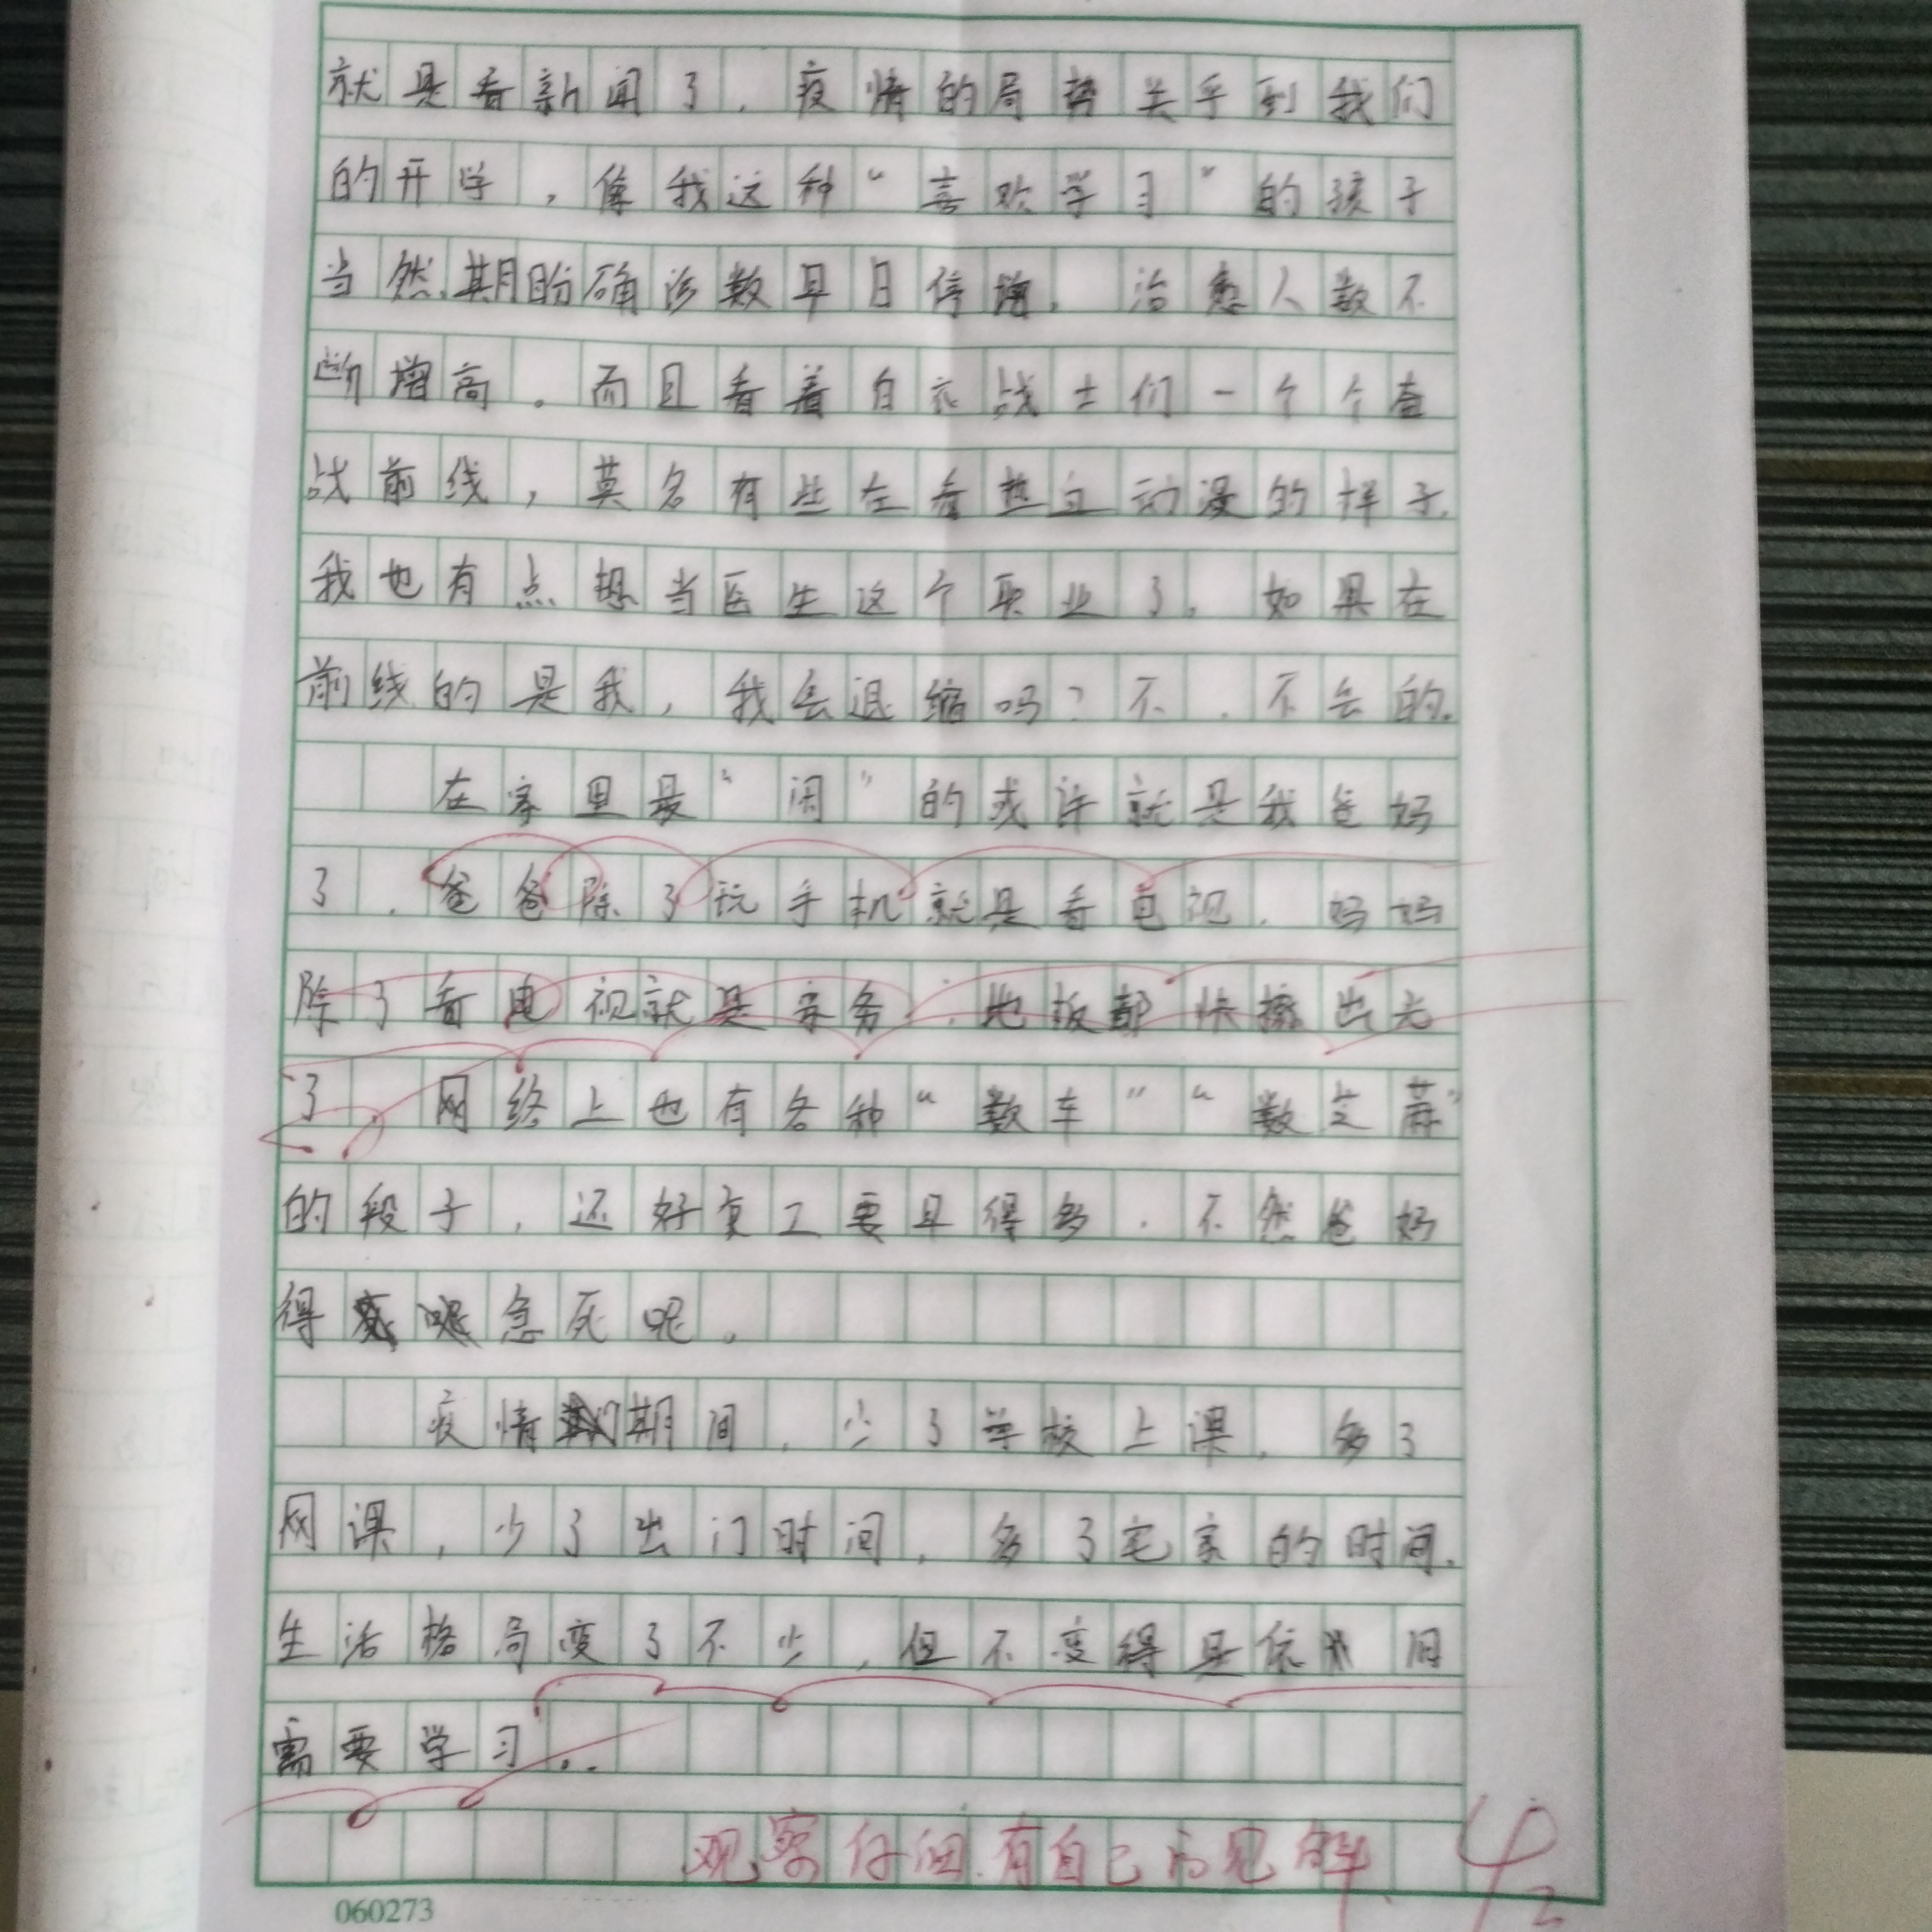 就是看新闻了，疫情的局势关乎到我们
的开学，像我这种“喜欢学习”的孩子
当然期盼确诊数早日停增，治愈人数不
断增高。而且看着白衣战士们一个个奋
战前线，莫名有些在看热血动漫的样子，
我也有点想当医生这个职业了。如果在
前线的是我，我会退缩吗？不，不会的。
在家里最“闲”的或许就是我爸妈
了，爸爸除了玩手机就是看电视，妈妈
除了看电视就是家务，地板都快擦出光
了，网络上也有各种“数车”“数芝麻”
的段子，还好复工要早得多，不然爸妈
得急死呢。
疫情期间，少了学校上课，多了
网课，少了出门时间，多了宅家的时间，
生活格局变了不少，但不变得是依旧
需要学习..
观察仔细，有自己的见解
42
060273